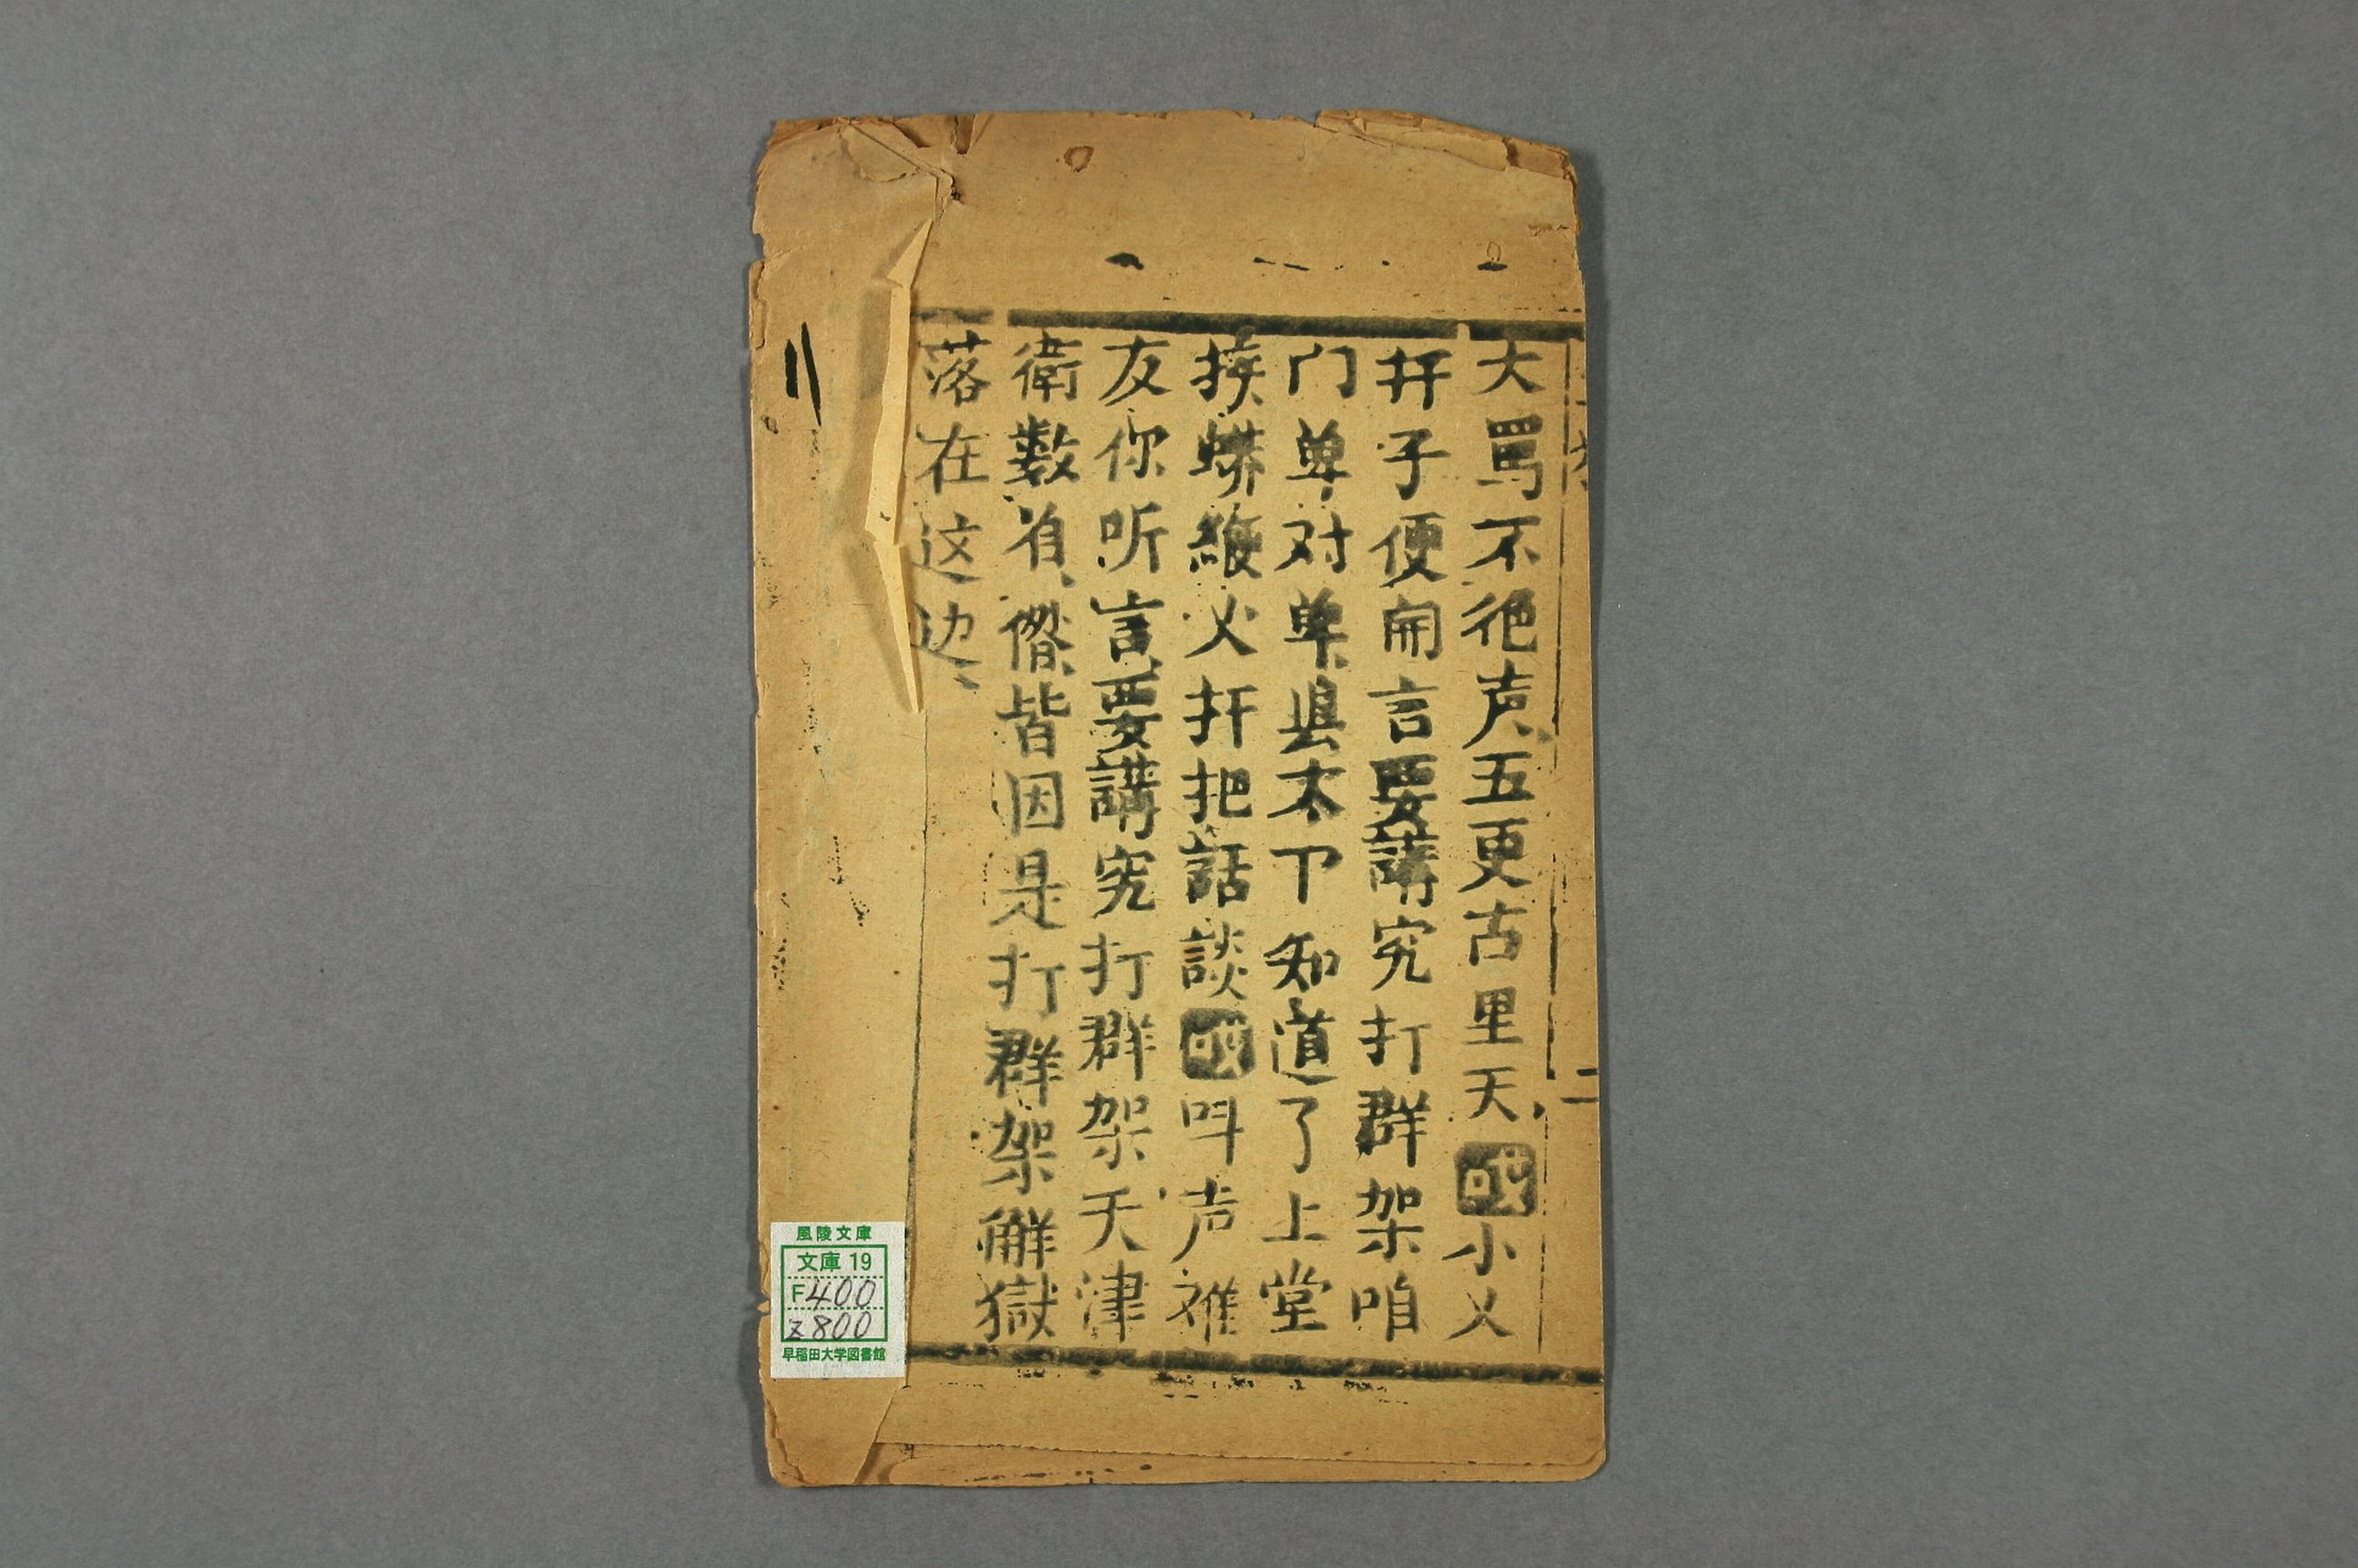 大罵不绝声五更古里天 小火
扦子便開言要講究打群架咱
门单对单 木下知道了上堂
挨蟒鞭火扦把話談 呌声雑
友你听言要講究打群架天津
衛数有 皆因是打群架觧獄
落在这边
二
風陵文庫
文庫 19
F400
z800
早稲田大学図書館